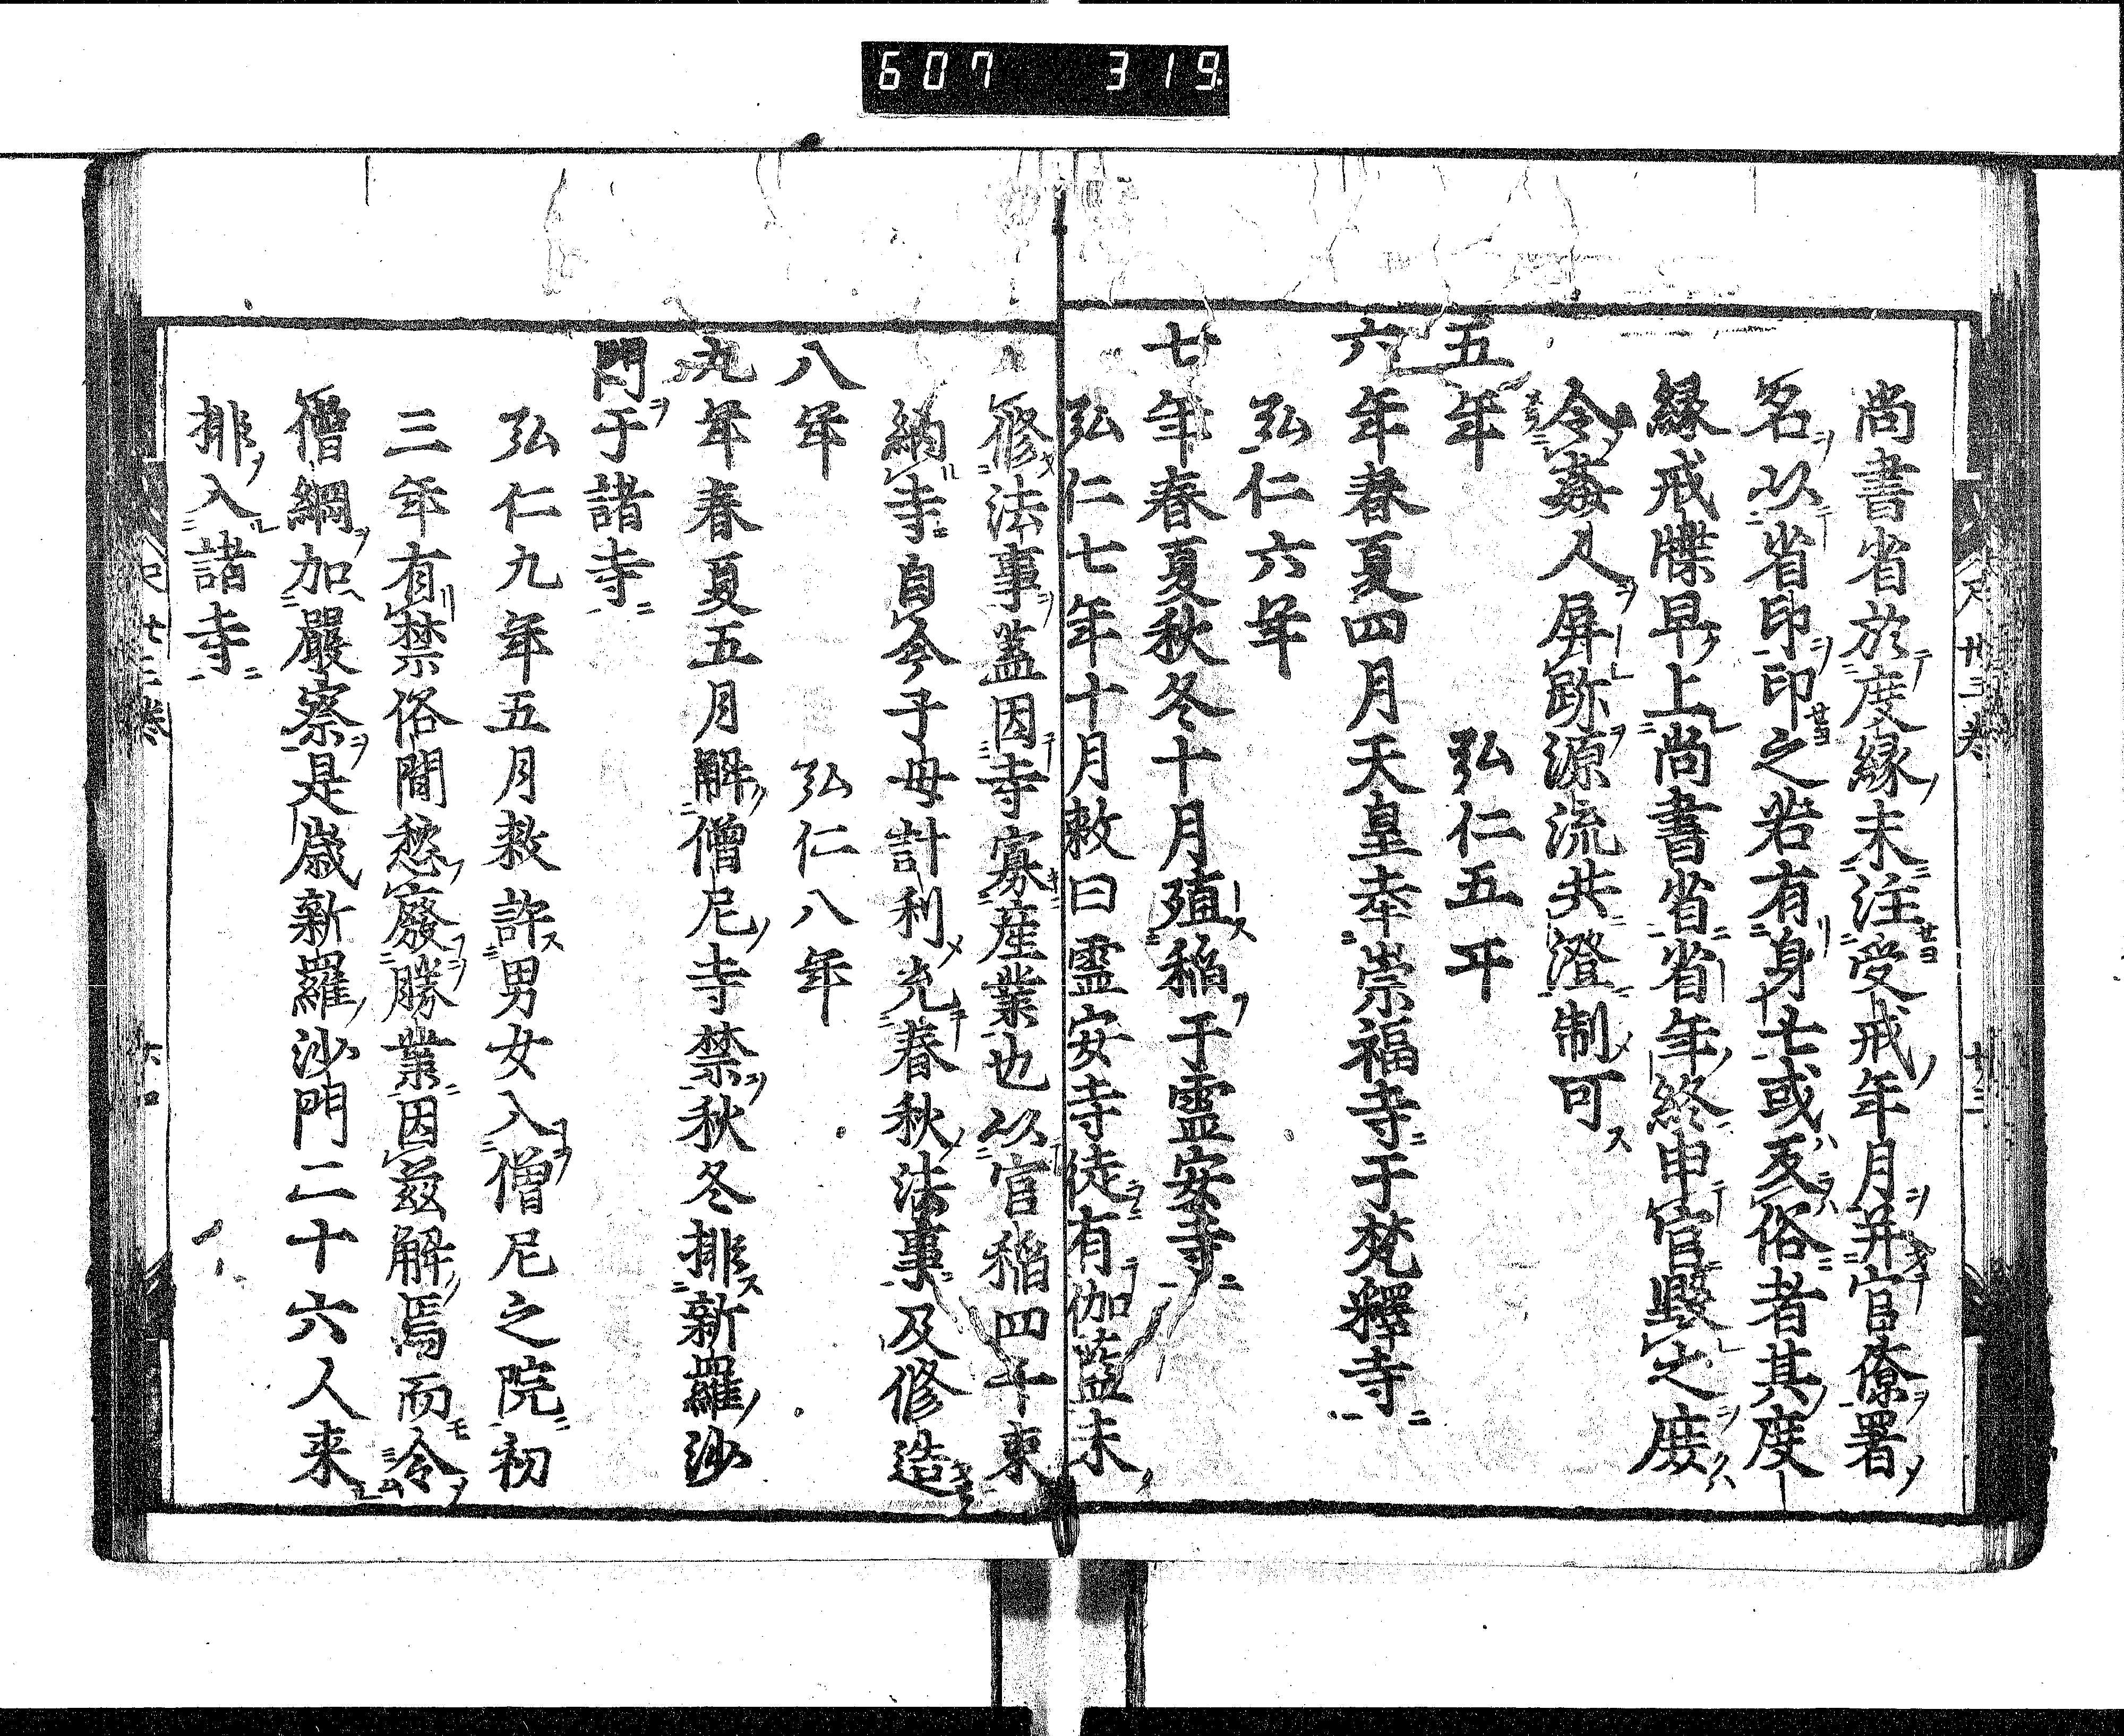 607 319
尚書省於度緣末注受戒年月并官僚署
名以省印印之若有身亡或反俗者其度
緣戒牒早上尚書省省年終申官毀之庻
令姦人屏跡源流共澄制可
五年 弘仁五年
六年春夏四月天皇幸崇福寺于梵釋寺
弘仁六年
七年春夏秋冬十月殖稲于霊安寺
弘仁七年十月敕曰霊安寺徒有伽藍未
修法事蓋因寺寡産業也以官稲四千束
納寺自今子母計利充春秋法事及修造
八年 弘仁八年
九年春夏五月解僧尼寺禁秋冬排新羅沙
門于諸寺
弘仁九年五月敕許男女入僧尼之院初
三年有禁俗間愁廢勝業因茲解焉而令
僧綱加嚴察是歲新羅沙門二十六人来
排入諸寺